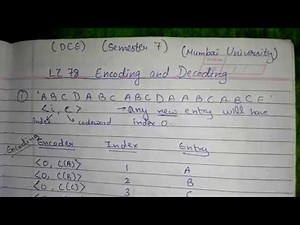 (DCE) (Semester 7) (Mumbai University)
LZ 78 Encoding and Decoding
① 'ABCDABCABCDAABCABCE'
<i, c> → Any new entry will have
Index codeword index 0.
Encoding
Encoder Index Entry
<0, C(A)> 1 A
<0, C(B)> 2 B
<0, C(C)> 3 C